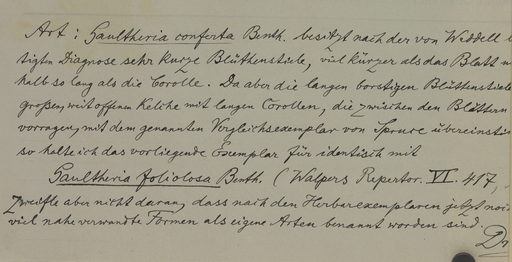 Art: Gaultheria conferta Benth. besitzt nach der von Weddell
tigten Diagnose sehr kurze Blüthenstiele, viel kürzer als das Blatt
halb so lang als die Corolle. Da aber die langen borstigen Blüthenstiele
großen, weit offenen Kelche mit langen Corollen, die zwischen den Blättern
vorragen, mit dem genannten Vergleichsexemplar von Spruce übereinstim
so halte ich das vorliegende Exemplar für identisch mit
Gaultheria foliolosa Benth. (Walpers Repertor. VI. 417,
Zweifle aber nicht daran, dass nach den Herbarexemplaren jetzt noch
viel nahe verwandte Formen als eigene Arten benannt worden sind.
Dr